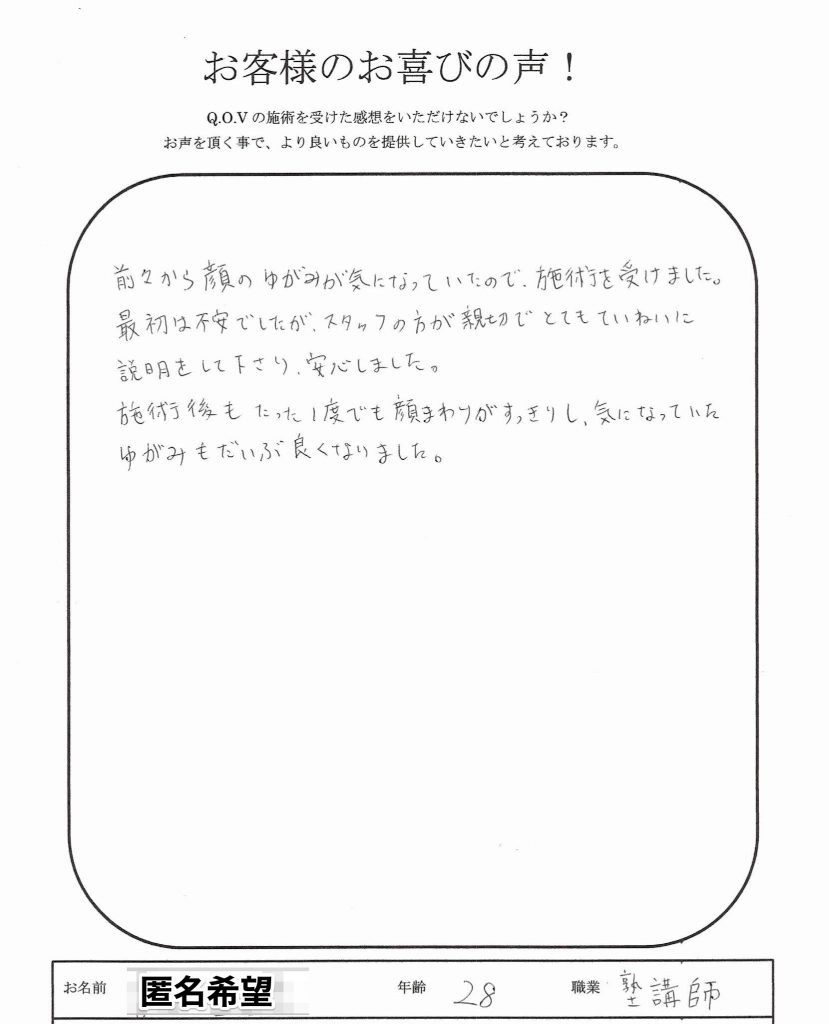 お客様のお喜びの声！
Q.O.Vの施術を受けた感想をいただけないでしょうか？
お声を頂く事で、より良いものを提供していきたいと考えております。
前々から顔のゆがみが気になっていたので、施術を受けました。
最初は不安でしたが、スタッフの方が親切でとてもていねいに
説明をして下さり、安心しました。
施術後もたった1度でも顔まわりがすっきりし、気になっていた
ゆがみもだいぶ良くなりました。
お名前 匿名希望 年齢 28 職業 塾講師